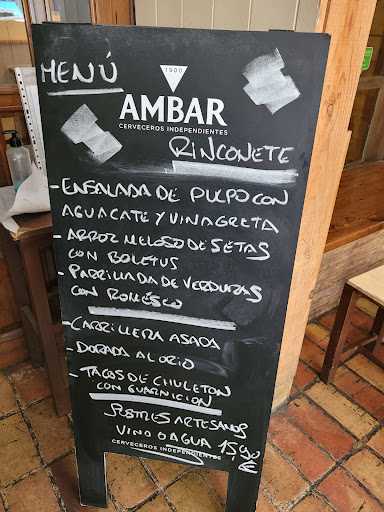 MENÚ
1900
AMBAR
CERVECEROS INDEPENDIENTES
RINCONETE
- ENSALADA DE PULPO CON
AGUACATE Y VINAGRETA
- ARROZ MELOSO DE SETAS
CON BOLETUS
- PARRILLADA DE VERDURAS
CON ROMESCO
- CARRILLERA ASADA
- DORADA AL ORIO
- TACOS DE CHULETON
CON GUARNICION
POSTRES ARTESANOS
VINO O AGUA 15,90 €
CERVECEROS INDEPENDIENTES